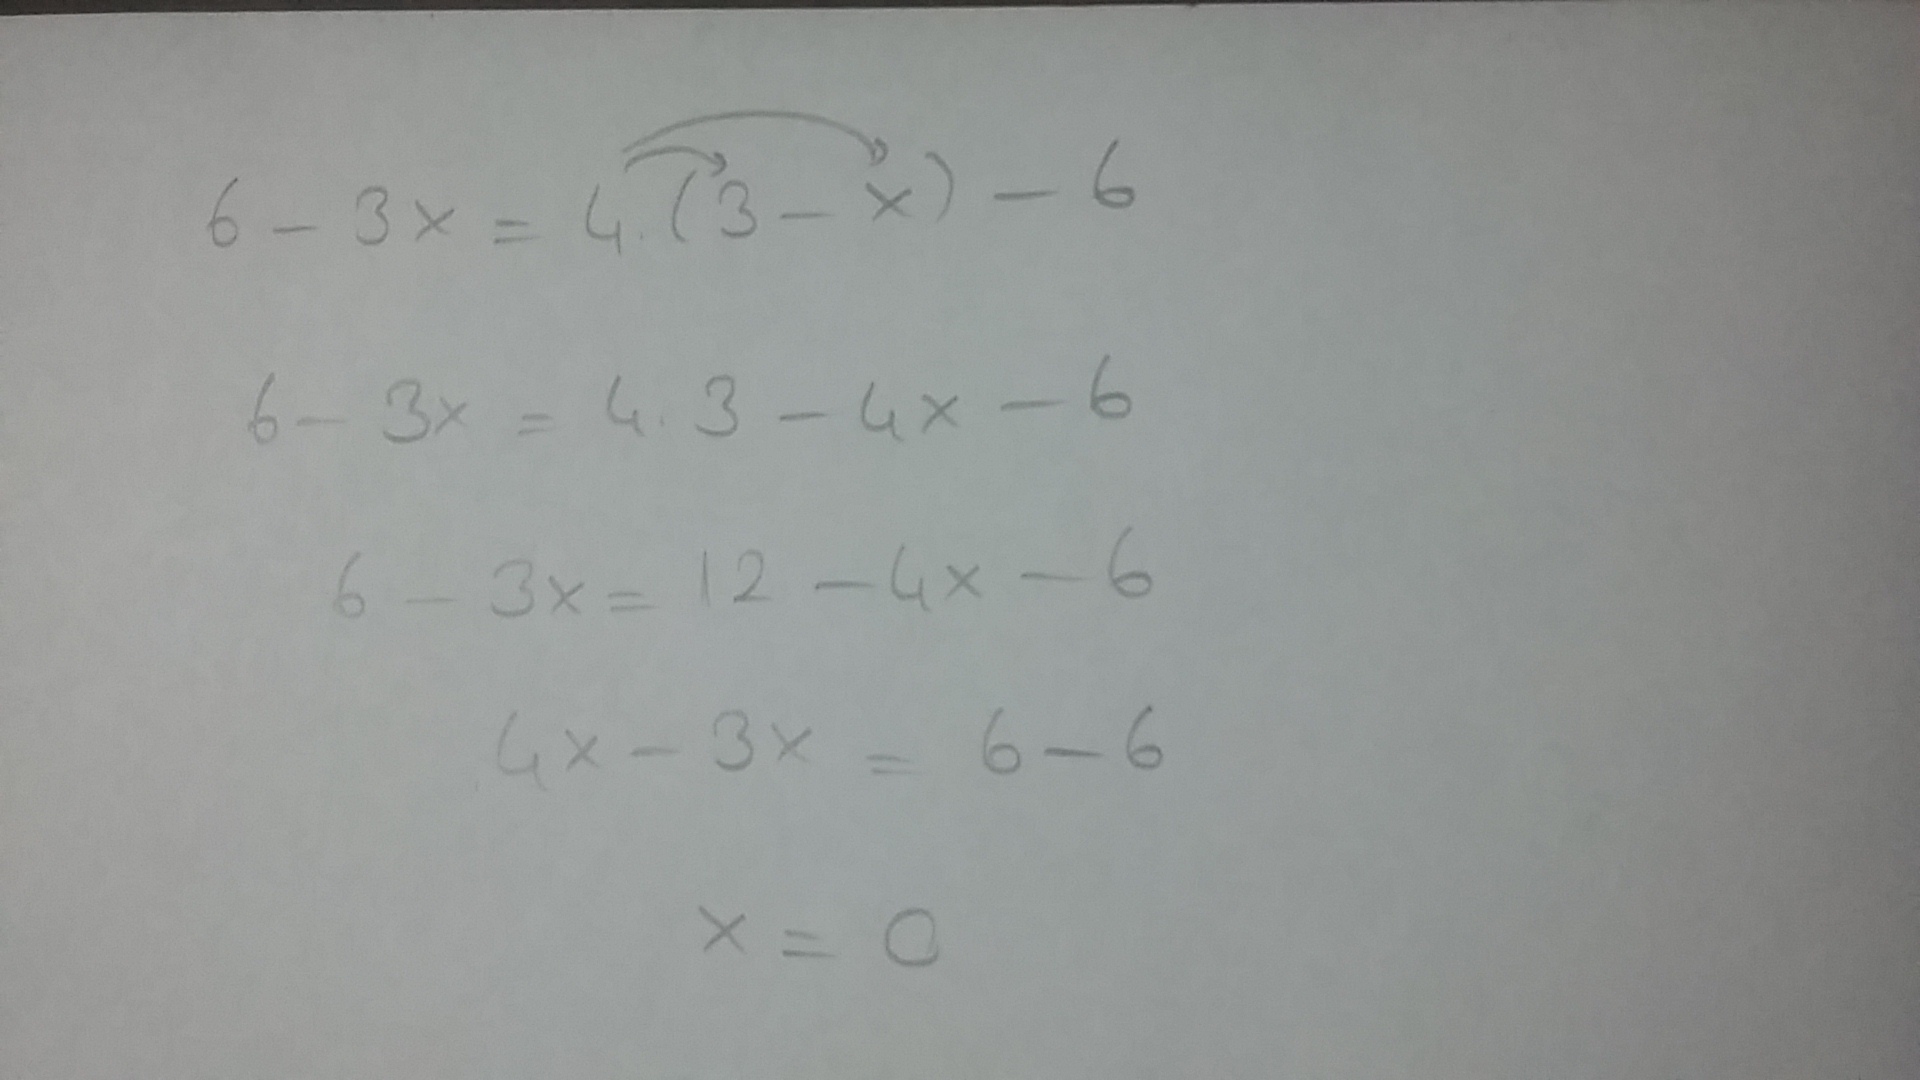 6 - 3x = 4.(3 - x) - 6
6 - 3x = 4.3 - 4x - 6
6 - 3x = 12 - 4x - 6
4x - 3x = 6 - 6
x = 0